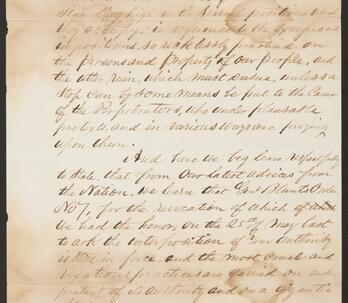 Standing high in the Social positions which
they occupy: in reference to the
impositions, so recklessly practised on
the persons and property of our people, and
the utter ruin, which must ensue, unless a
stop can by some means be put to the Career
of the Perpetrators, who under plausable
pretexts, and in various ways are preying
upon them.
And here we beg leave respectfully
to state, that from our latest advices from
the Nation, we learn that Genl Blunts Order
No 7, for the revocation of which
we had the honor, on the 25th of May last
to ask the interposition of your authority
is still in force, and the most cruel and
vexatious practices are carried on under
pretext of its authority and on a gigantic